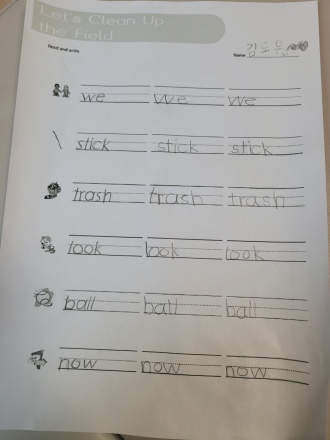 Let's Clean Up
the Field
Read and write.
Name
we we we
stick stick stick
trash trash trash
look look look
ball ball ball
now now now